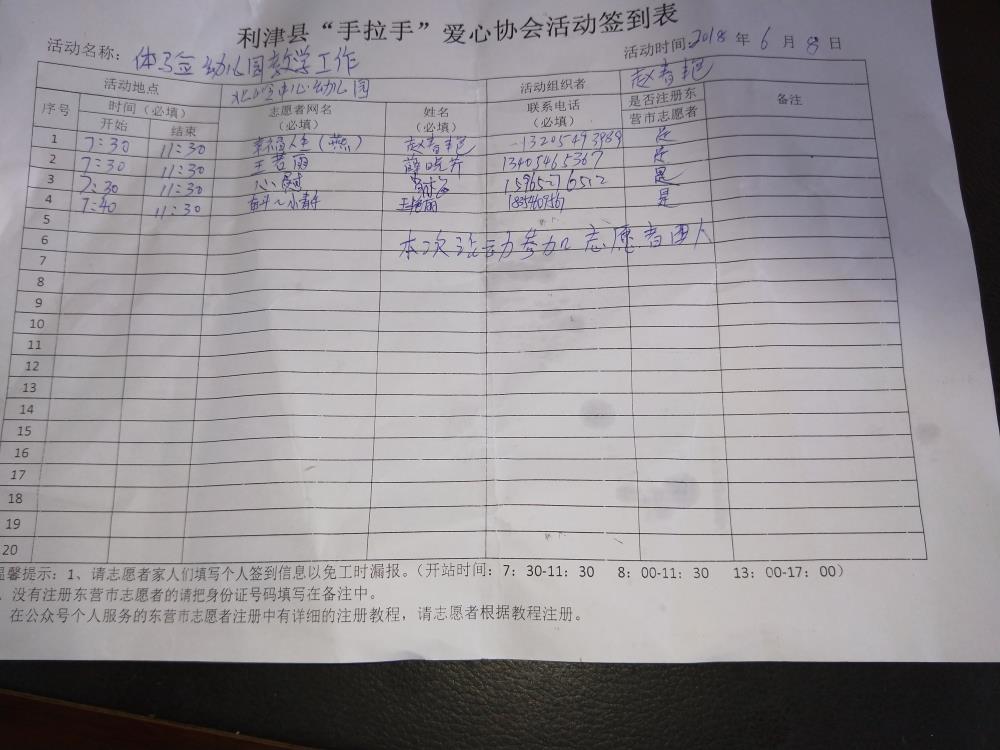 利津县“手拉手”爱心协会活动签到表
活动名称：体验幼儿园教学工作 活动时间：2018 年 6 月 8 日
活动地点 中心幼儿园 活动组织者 赵春艳
序号 时间（必填） 志愿者网名（必填） 姓名（必填） 联系电话（必填） 是否注册东营市志愿者 备注
开始 结束
1 7:30 11:30 幸福人生（燕） 赵春艳 13205493989 是
2 7:30 11:30 王若雨 薛晓芹 13405465367 是
3 7:30 11:30 心 15965276512 是
4 7:40 11:30 王艳丽 是
5
6 本次活动参加志愿者四人
7
8
9
10
11
12
13
14
15
16
17
18
19
20
温馨提示：1、请志愿者家人们填写个人签到信息以免工时漏报。（开站时间：7：30-11：30 8：00-11：30 13：00-17：00）
没有注册东营市志愿者的请把身份证号码填写在备注中。
在公众号个人服务的东营市志愿者注册中有详细的注册教程，请志愿者根据教程注册。